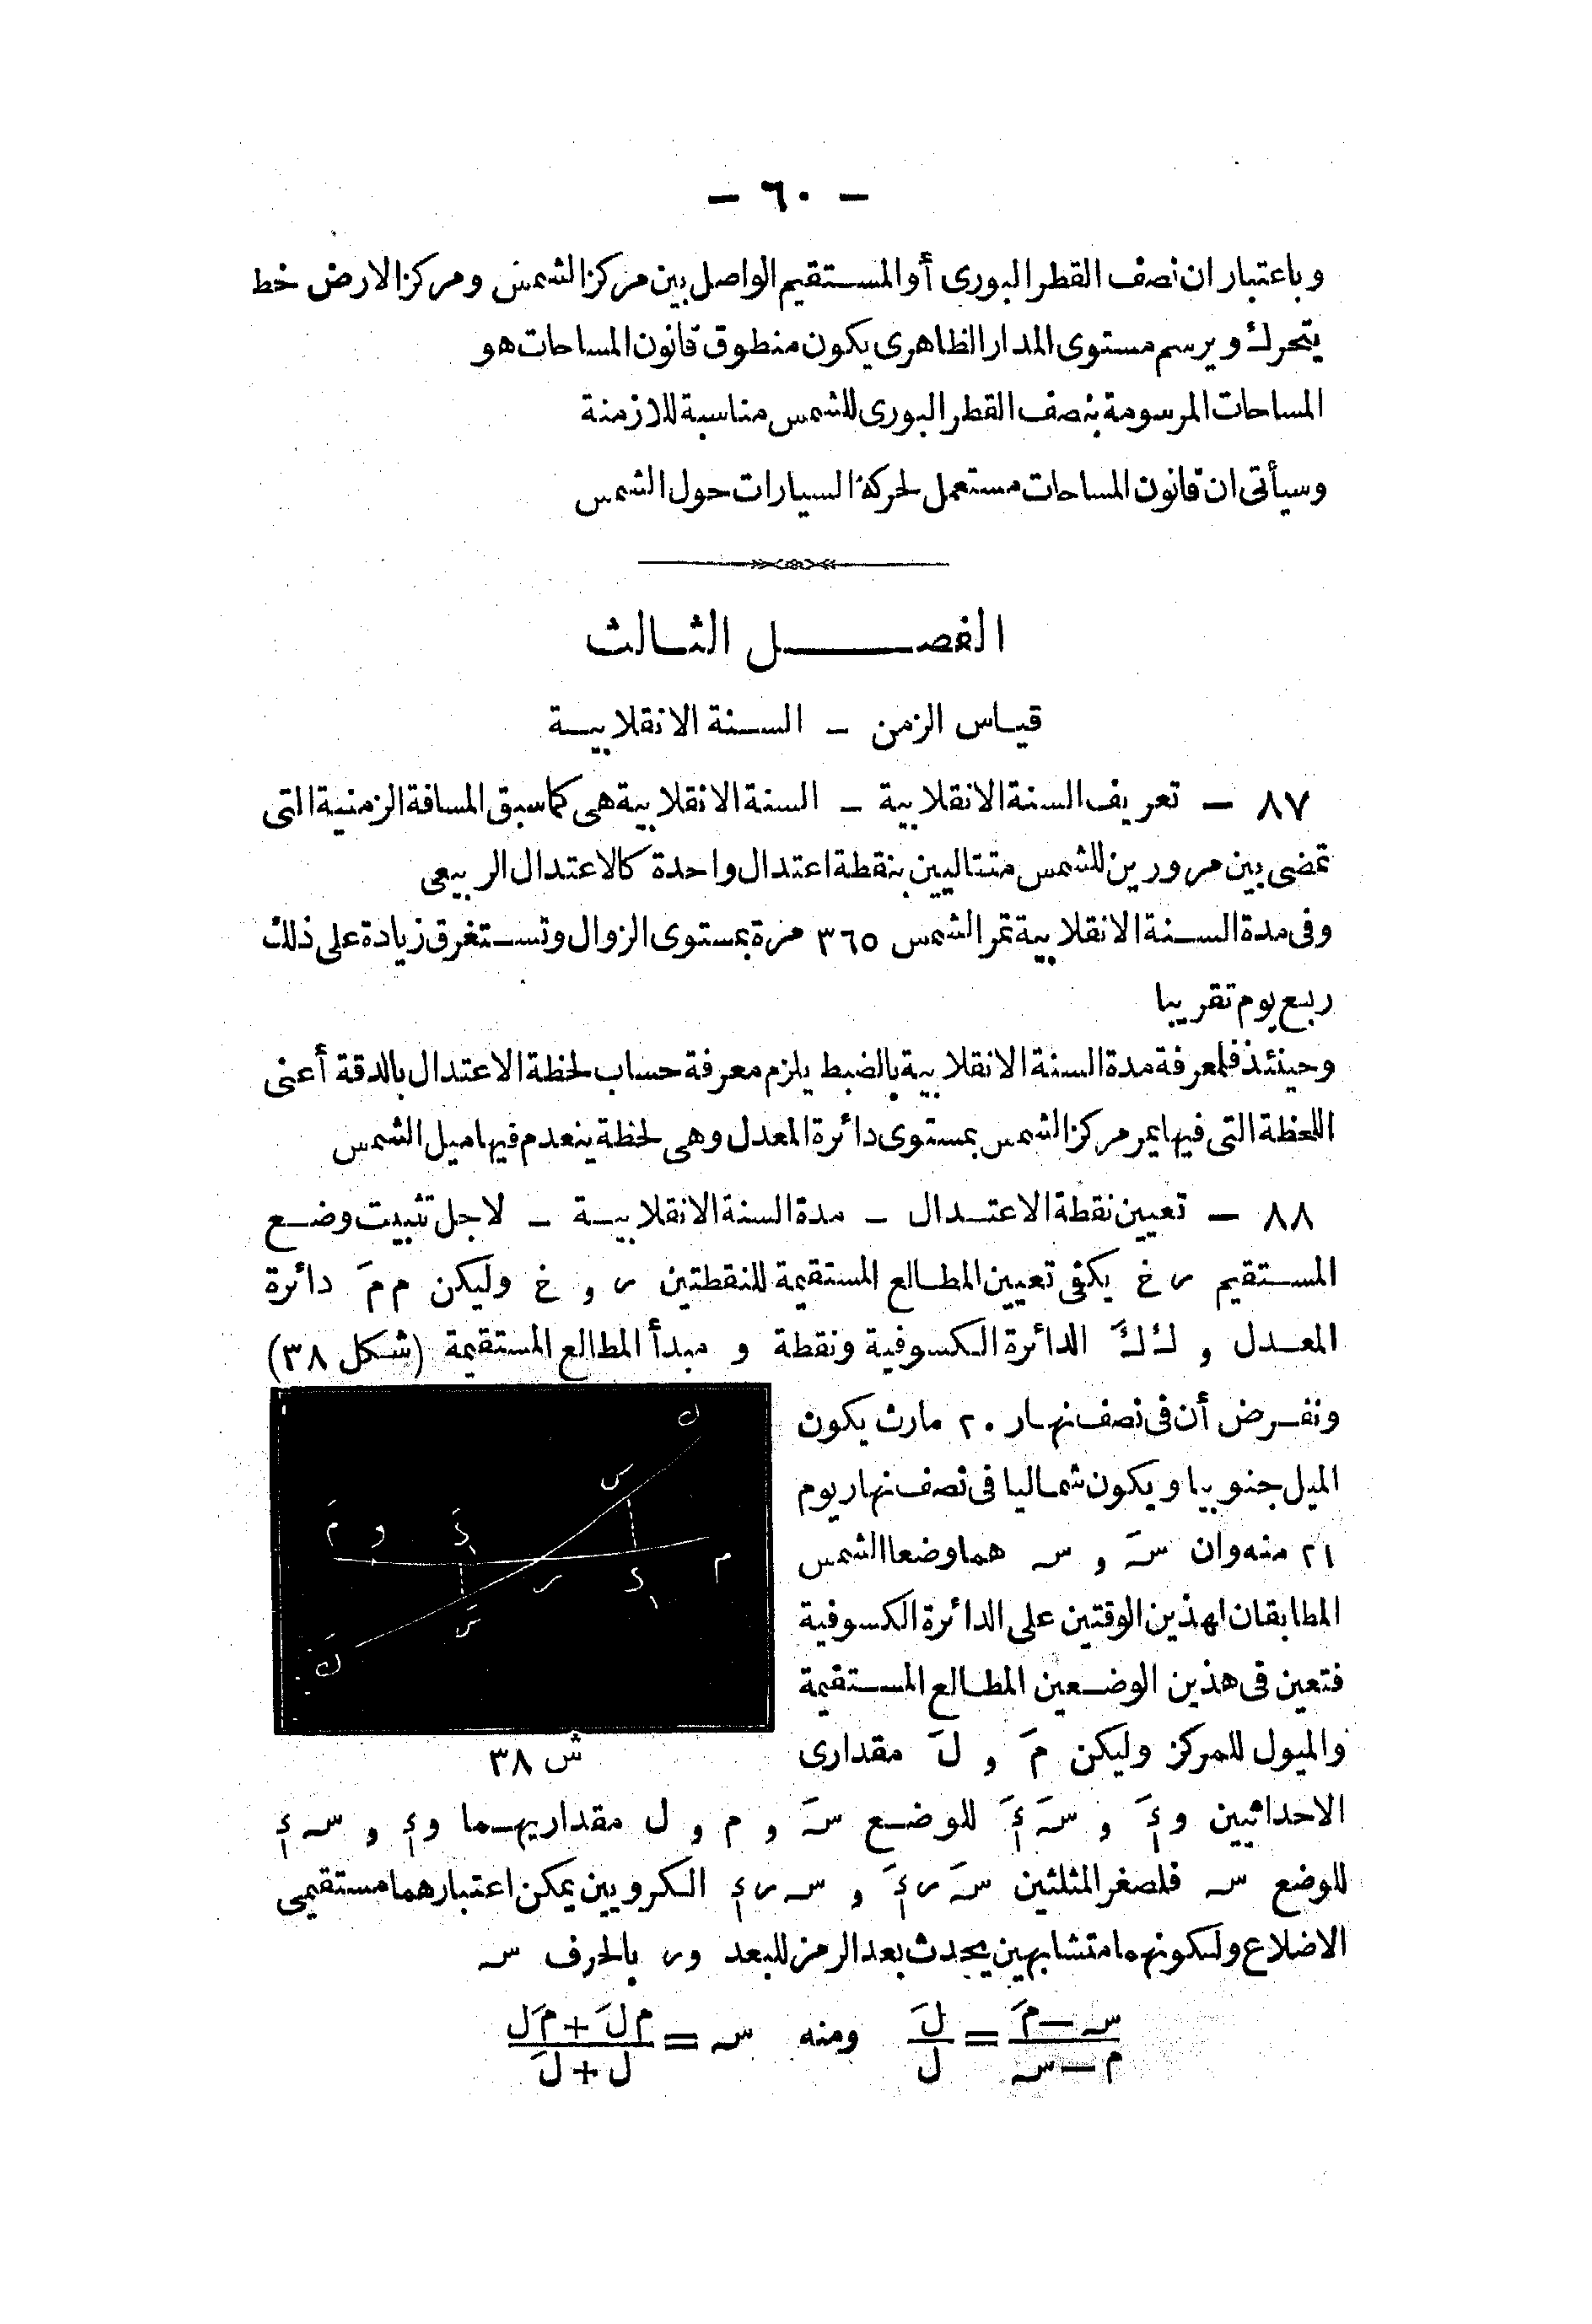 — ٦٠ —
وباعتبار ان نصف القطر البورى أو المستقيم الواصل بين مركز الشمس ومركز الارض خط
يتحرك ويرسم مستوى المدار الظاهرى يكون منطوق قانون المساحات هو
المساحات المرسومة بنصف القطر البورى للشمس مناسبة للازمنة
وسيأتى ان قانون المساحات مستعمل لحركة السيارات حول الشمس
الفصل الثالث
قياس الزمن – السنة الانقلابية
٨٧ — تعريف السنة الانقلابية – السنة الانقلابية هى كما سبق المسافة الزمنية التى
تمضى بين مرورين للشمس متتاليين بنقطة اعتدال واحدة كالاعتدال الربيعى
وفى مدة السنة الانقلابية تمر الشمس ٣٦٥ مرة بمستوى الزوال وتستغرق زيادة على ذلك
ربع يوم تقريبا
وحينئذ فلمعرفة مدة السنة الانقلابية بالضبط يلزم معرفة حساب لحظة الاعتدال بالدقة أعنى
اللحظة التى فيها يمر مركز الشمس بمستوى دائرة المعدل وهى لحظة ينعدم فيها ميل الشمس
٨٨ — تعيين نقطة الاعتدال – مدة السنة الانقلابية – لاجل تثبيت وضع
المستقيم ر خ يكفى تعيين المطالع المستقيمة للنقطتين ر , خ وليكن م مَ دائرة
المعدل , ك كَ الدائرة الكسوفية ونقطة و مبدأ المطالع المستقيمة (شكل ٣٨)
ونفرض أن فى نصف نهار ٢٠ مارث يكون
الميل جنوبيا ويكون شماليا فى نصف نهار يوم
٢١ منه وان سَ , س هما وضعا الشمس
المطابقان لهذين الوقتين على الدائرة الكسوفية
فتعين فى هذين الوضعين المطالع المستقيمة
والميول للمركز وليكن مَ , لَ مقدارى
ك
س
مَ و
م
ر
سَ
كَ
ش ٣٨
الاحداثيين وءَ , سَ ءَ للوضع سَ , م , ل مقداريهما وء , س ء
للوضع س فلصغر المثلثين سَ رءَ , س رء الكرويين يمكن اعتبارهما مستقيمى
الاضلاع ولكونهما متشابهين يحدث بعد الرمز للبعد ور بالحرف س
(س — مَ)/(م — س) = لَ/ل ومنه س = (م لَ + مَ ل)/(ل + لَ)